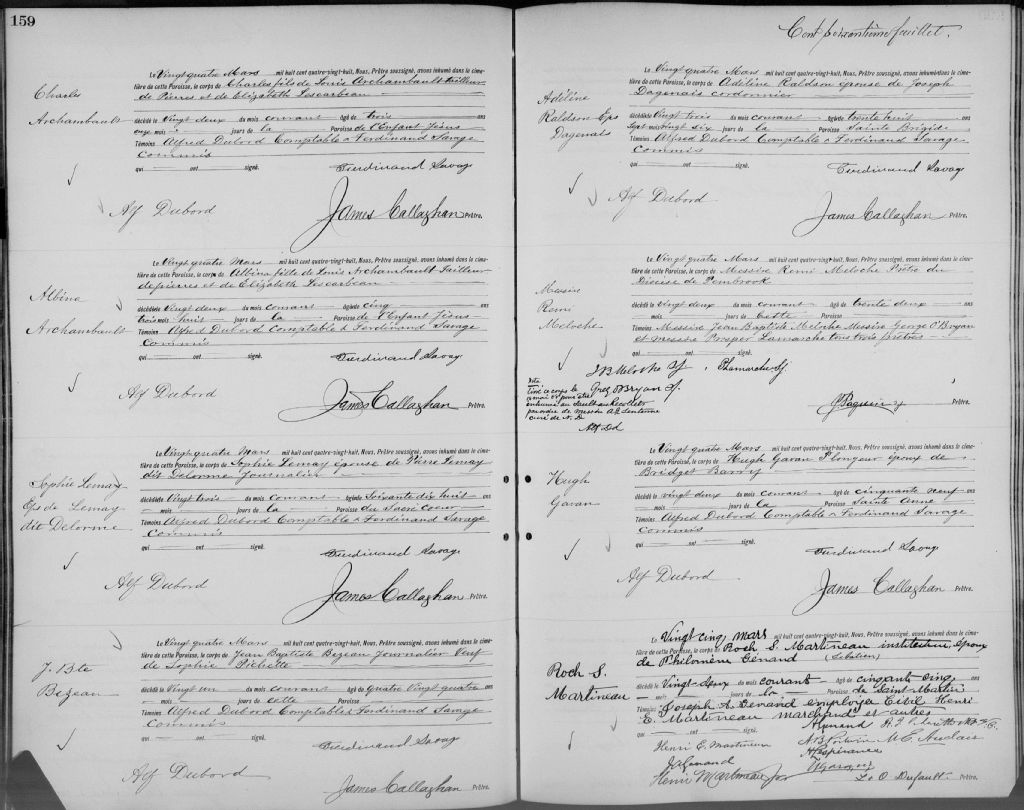 159
Charles
Archambault
Le Vingt quatre Mars mil huit cent quatre-vingt-huit, Nous, Prêtre soussigné, avons inhumé dans le cime-
tière de cette Paroisse, le corps de Charles fils de Louis Archambault tailleur
de Pierres et de Elizabeth Lescarbeau
décédé le Vingt deux du mois courant âgé de trois ans
onze mois jours de la Paroisse de l'Enfant Jésus
Témoins Alfred Dubord Comptable & Ferdinand Savage
Commis
qui ont signé. Ferdinand Savage
Alf Dubord
James Callaghan Prêtre.
Albina
Archambault
Le Vingt quatre Mars mil huit cent quatre-vingt-huit, Nous, Prêtre soussigné, avons inhumé dans le cime-
tière de cette Paroisse, le corps de Albina fille de Louis Archambault Tailleur
de pierres et de Elizabeth Lescarbeau
décédé le Vingt deux du mois courant âgé de cinq ans
trois mois huit jours de la Paroisse de l'Enfant Jésus
Témoins Alfred Dubord Comptable & Ferdinand Savage
Commis
qui ont signé. Ferdinand Savage
Alf Dubord
James Callaghan Prêtre.
Sophie Lemay
Eps de Lemay
dit Delorme
Le Vingt quatre Mars mil huit cent quatre-vingt-huit, Nous, Prêtre soussigné, avons inhumé dans le cime-
tière de cette Paroisse, le corps de Sophie Lemay épouse de Pierre Lemay
dit Delorme Journalier
décédé le Vingt trois du mois courant âgé de Soixante dix huit ans
mois jours de la Paroisse du Sacré Coeur
Témoins Alfred Dubord Comptable & Ferdinand Savage
Commis
qui ont signé. Ferdinand Savage
Alf Dubord
James Callaghan Prêtre.
J. Bte
Bezeau
Le Vingt quatre Mars mil huit cent quatre-vingt-huit, Nous, Prêtre soussigné, avons inhumé dans le cime-
tière de cette Paroisse, le corps de Jean Baptiste Bezeau Journalier Veuf
de Sophie Pichette
décédé le Vingt un du mois courant âgé de Quatre Vingt quatre ans
mois jours de cette Paroisse
Témoins Alfred Dubord Comptable & Ferdinand Savage
Commis
qui ont signé. Ferdinand Savage
Alf Dubord
James Callaghan Prêtre.
feuillet.
Adéline
Raldson Eps
Dagenais
Le Vingt quatre Mars mil huit cent quatre-vingt-huit, Nous, Prêtre soussigné, avons inhumé dans le cime-
tière de cette Paroisse, le corps de Adéline Raldson épouse de Joseph
Dagenais cordonnier
décédé le Vingt trois du mois courant âgé de trente huit ans
Sept mois vingt six jours de la Paroisse Sainte Brigide
Témoins Alfred Dubord Comptable & Ferdinand Savage
Commis
qui ont signé. Ferdinand Savage
Alf Dubord
James Callaghan Prêtre.
Messire
Remi
Meloche
Le Vingt quatre Mars mil huit cent quatre-vingt-huit, Nous, Prêtre soussigné, avons inhumé dans le cime-
tière de cette Paroisse, le corps de Messire Remi Meloche Prêtre du
Diocèse de Pembrook
décédé le Vingt deux du mois courant âgé de trente deux ans
mois jours de Cette Paroisse
Témoins Messire Jean Baptiste Meloche Messire George O'Bryan
et messire Prosper Lamarche tous trois prêtres
J B Meloche P. Lamarche
O'Bryan
Prêtre.
Hugh
Gavan
Le Vingt quatre Mars mil huit cent quatre-vingt-huit, Nous, Prêtre soussigné, avons inhumé dans le cime-
tière de cette Paroisse, le corps de Hugh Gavan Plongeur époux de
Bridget Barry
décédé le vingt deux du mois courant âgé de cinquante neuf ans
mois jours de la Paroisse Sainte Anne
Témoins Alfred Dubord Comptable & Ferdinand Savage
Commis
qui ont signé. Ferdinand Savage
Alf Dubord
James Callaghan Prêtre.
Roch S.
Martineau
Le Vingt cinq mars mil huit cent quatre-vingt-huit, Nous, Prêtre soussigné, avons inhumé dans le cime-
tière de cette Paroisse, le corps de Roch S. Martineau instituteur, époux
de Philomène Genand
décédé le Vingt-deux du mois courant âgé de cinquante cinq ans
mois jours de la Paroisse de Saint Martin
Témoins Joseph A. Genand employé Civil Henri
E. Martineau marchand et autres
Henri E. Martineau
J A Genand
Henri Martineau jor
L. O Dufault Prêtre.